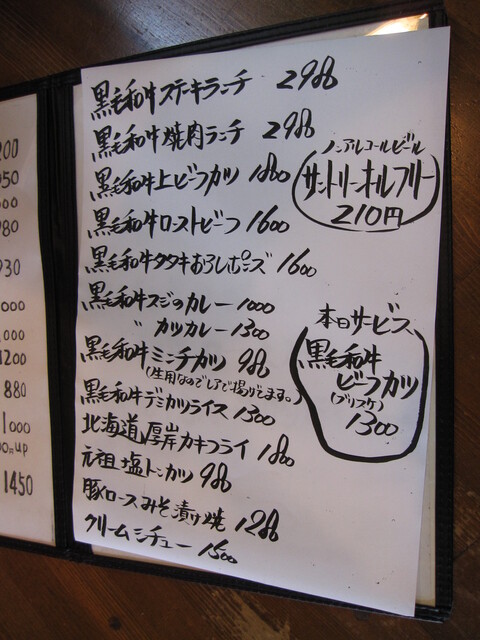 黒毛和牛ステーキランチ 2980
黒毛和牛焼肉ランチ 2980
黒毛和牛上ビーフカツ 1800
黒毛和牛ローストビーフ 1600
黒毛和牛タタキおろしポンズ 1600
黒毛和牛スジのカレー 1000
〃 カツカレー 1300
黒毛和牛ミンチカツ 980
(生用なのでレアで揚げてます。)
黒毛和牛デミカツライス 1300
北海道厚岸カキフライ 1800
元祖塩トンカツ 980
豚ロースみそ漬け焼 1280
クリームシチュー 1500
ノンアルコールビール
サントリーオールフリー
210円
本日サービス
黒毛和牛
ビーフカツ
(ブリスケ)
1300
200
950
000
980
930
000
,000
1200
880
1000
1450